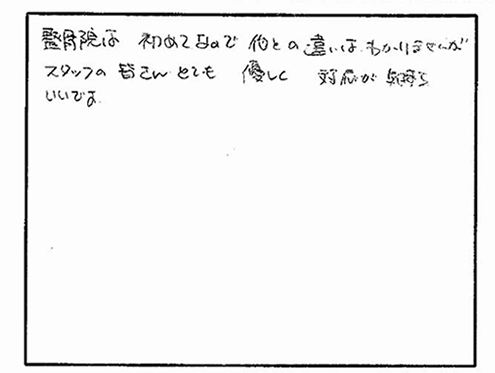 整骨院は 初めてなので 他との違いは わかりませんが
スタッフの 皆さん とても 優しく 対応が 気持ち
いいです。